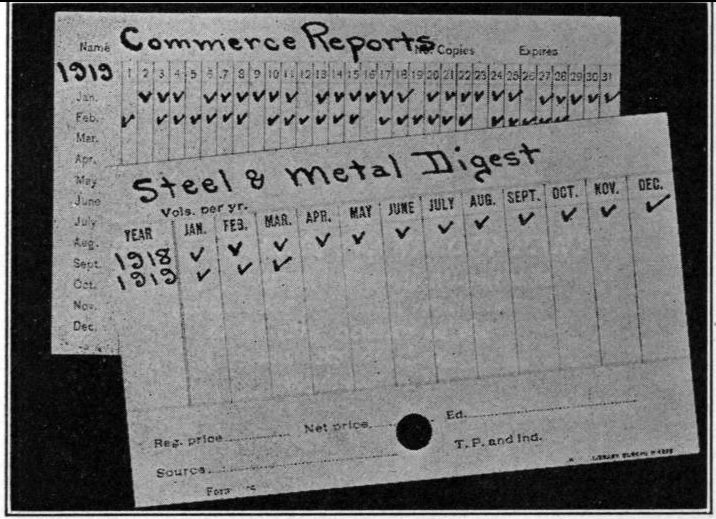 Name Commerce Reports No. Copies Expires
1919 1 2 3 4 5 6 7 8 9 10 11 12 13 14 15 16 17 18 19 20 21 22 23 24 25 26 27 28 29 30 31
Jan. ✓ ✓ ✓ ✓ ✓ ✓ ✓ ✓ ✓ ✓ ✓ ✓ ✓ ✓ ✓ ✓ ✓ ✓ ✓ ✓ ✓ ✓ ✓ ✓ ✓ ✓
Feb.
Mar.
Apr.
May
June
July
Aug.
Sept.
Oct.
Nov.
Dec.
Steel & Metal Digest
Vols. per yr.
YEAR JAN. FEB. MAR. APR. MAY JUNE JULY AUG. SEPT. OCT. NOV. DEC.
1918 ✓ ✓ ✓ ✓ ✓ ✓ ✓ ✓ ✓ ✓ ✓ ✓
1919 ✓ ✓ ✓
Reg. price Net price Ed.
Source T. P. and Ind.